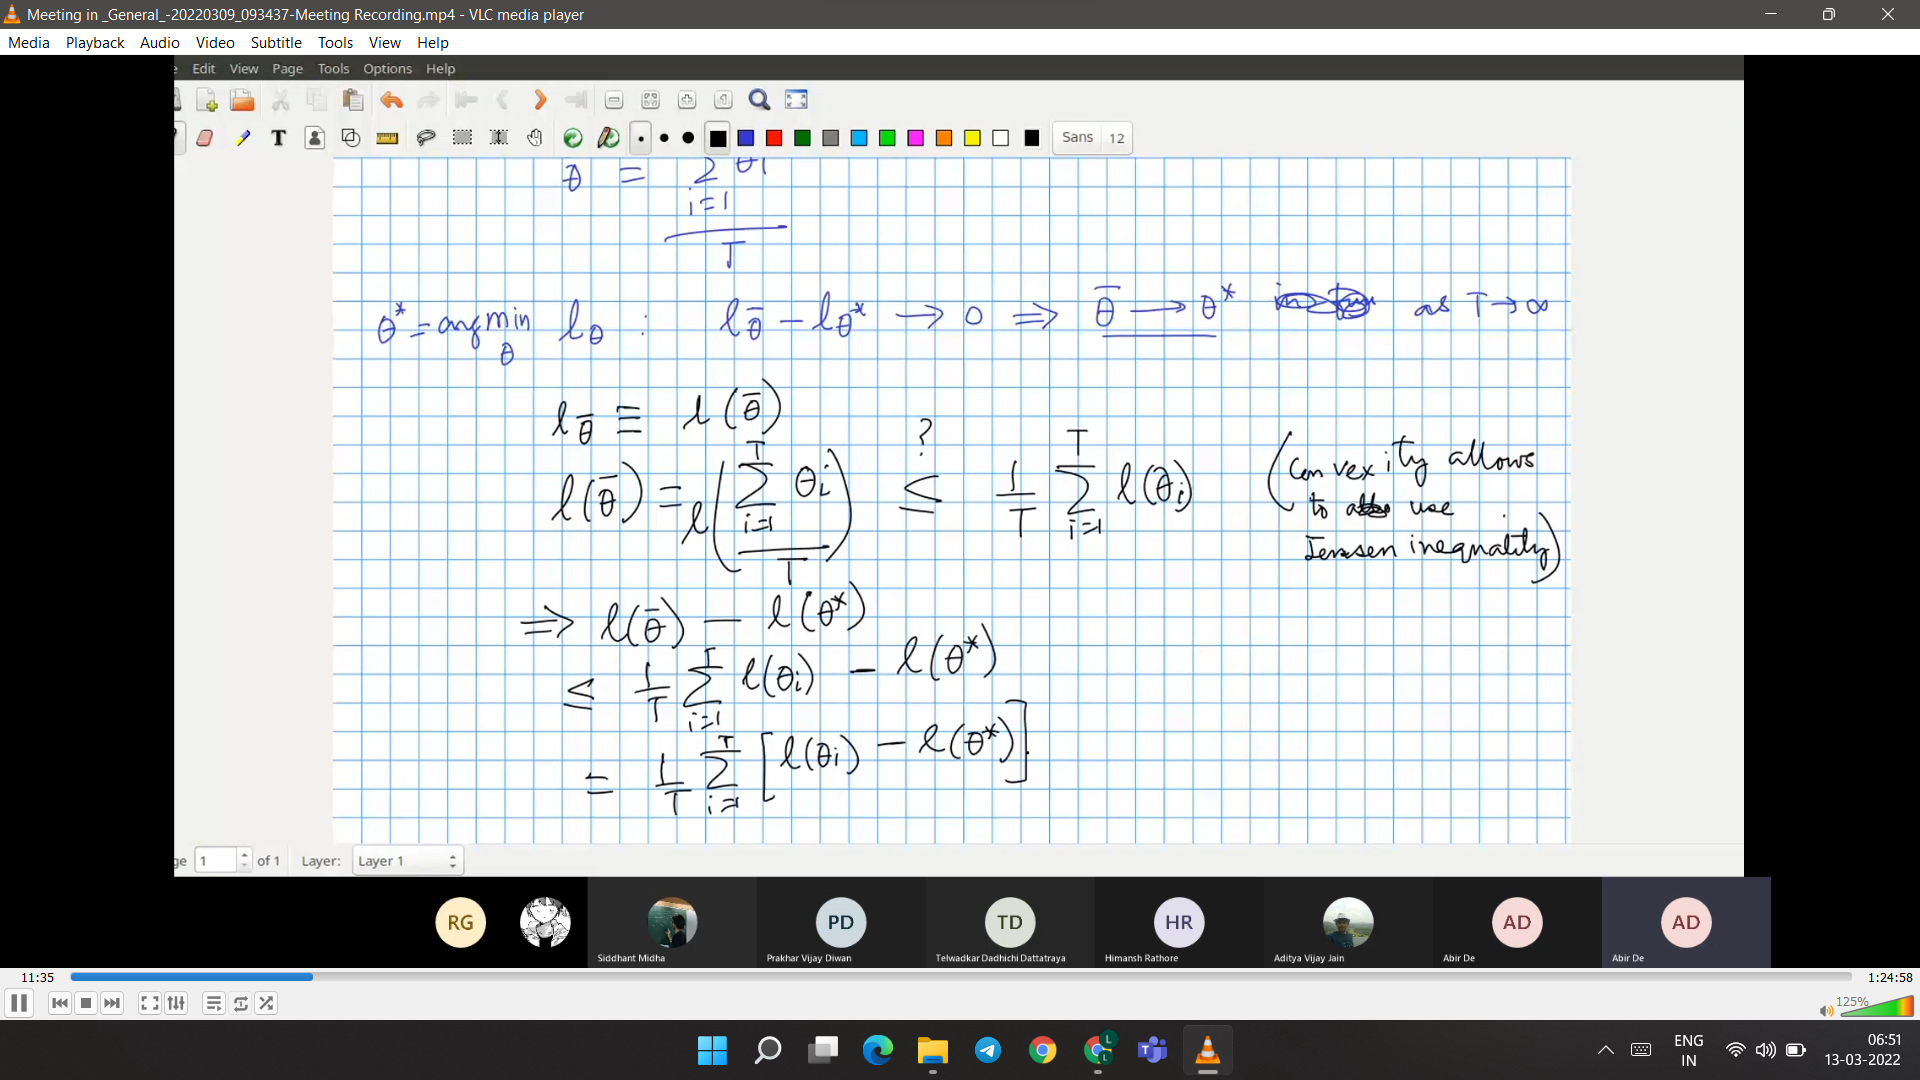 Meeting in _General_-20220309_093437-Meeting Recording.mp4 - VLC media player
Media Playback Audio Video Subtitle Tools View Help
Edit View Page Tools Options Help
Sans 12
θ̄ = Σ θi
i=1
T
θ* = argmin lθ : l_θ̄ - l_θ* → 0 ⇒ θ̄ → θ* as T → ∞
θ
l_θ̄ ≡ l(θ̄)
l(θ̄) = l( Σ_{i=1}^{T} θi / T ) ≤? 1/T Σ_{i=1}^{T} l(θi) (Convexity allows
to use
Jensen inequality)
⇒ l(θ̄) - l(θ*)
≤ 1/T Σ_{i=1}^{T} l(θi) - l(θ*)
= 1/T Σ_{i=1}^{T} [l(θi) - l(θ*)]
ge 1 of 1 Layer: Layer 1
RG PD TD HR AD AD
Siddhant Midha Prakhar Vijay Diwan Telwadkar Dadhichi Dattatraya Himansh Rathore Aditya Vijay Jain Abir De Abir De
11:35 1:24:58
125%
L L
ENG 06:51
IN 13-03-2022